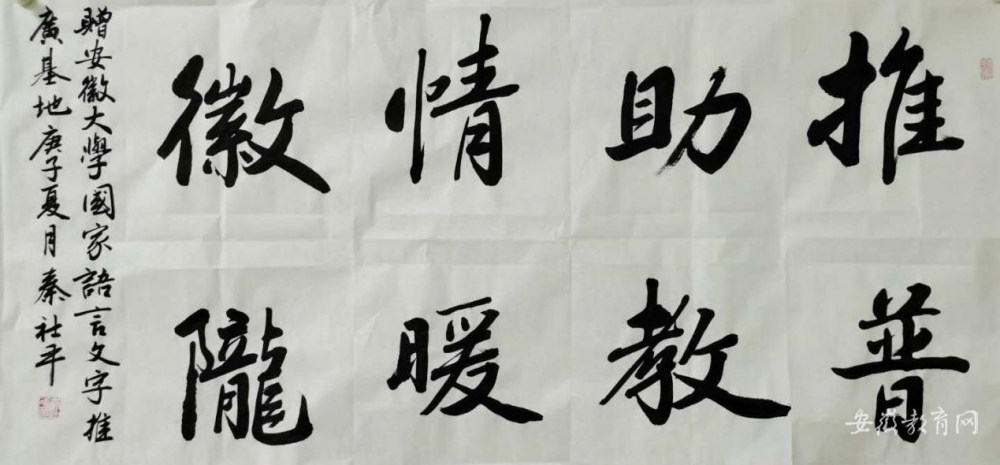 推普
助教
情暖
徽隴
贈安徽大學國家語言文字推
廣基地庚子夏月秦社平
安徽教育网